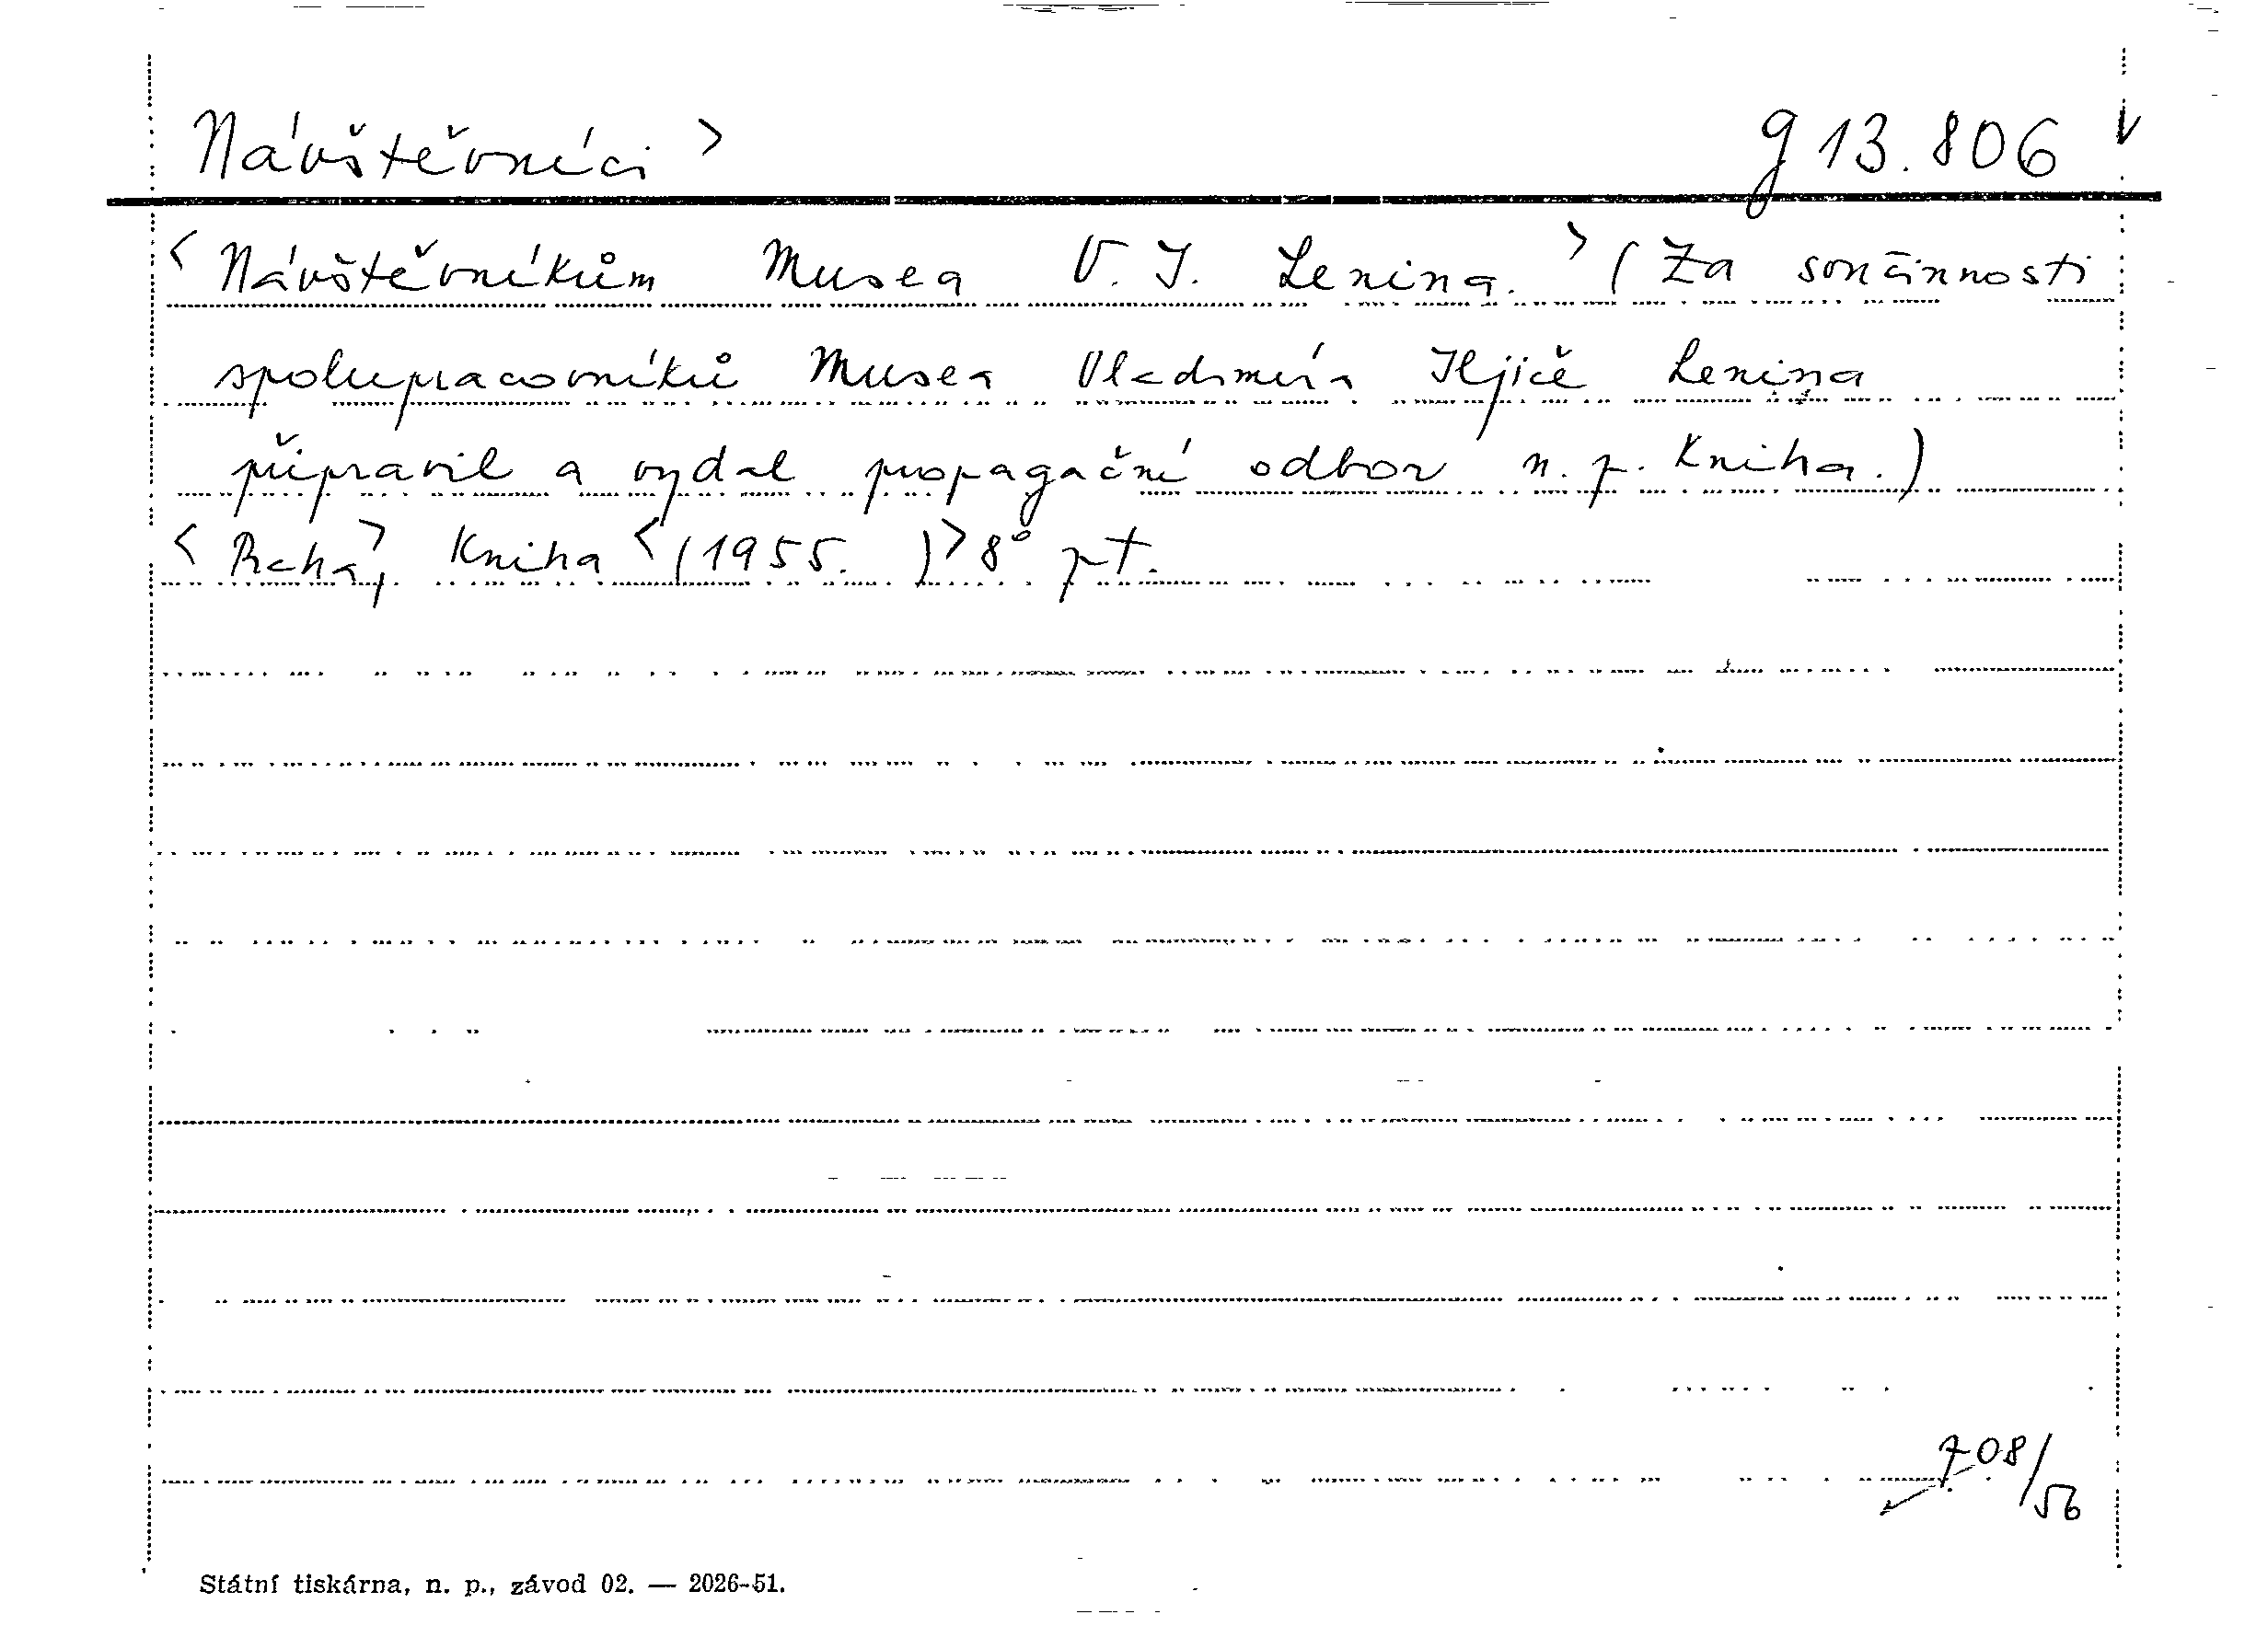 Návštěvníci > g 13.806 v
<Návštěvníkům Musea V. I. Lenina.> (Za součinnosti
spolupracovníků Musea Vladimíra Iljiče Lenina
připravil a vydal propagační odbor n. p. Kniha.)
<Praha,> Kniha <(1955. )> 8° pt.
708/56
Státní tiskárna, n. p., závod 02. — 2026-51.